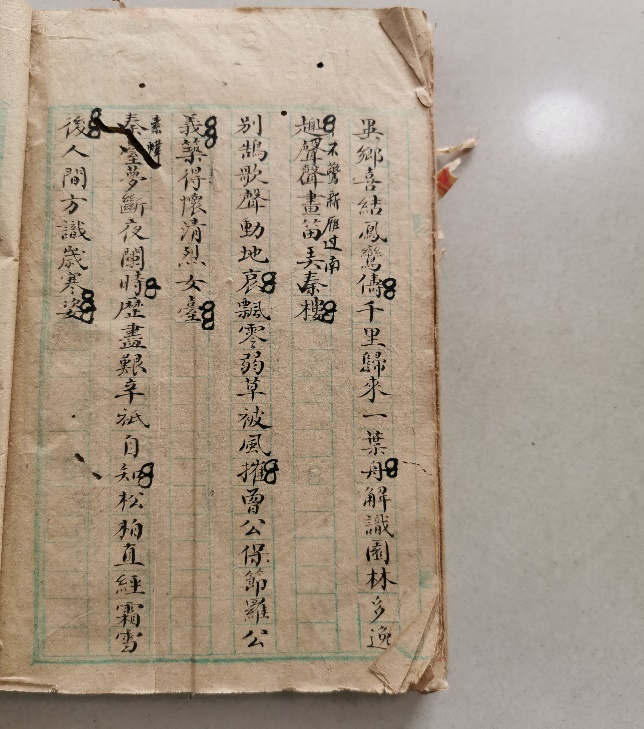 異鄉喜結鳳鸞儔千里歸來一葉舟解識園林多逸
不驚新雁过南
趣聲聲畫笛秦樓
別鵠歌聲動地哀飄零弱草被風摧曾公保節羅公
義築得懷清烈女臺
素幃
秦臺夢斷夜闌時歷盡艱辛祇自知松柏直經霜雪
後人間方識歲寒姿